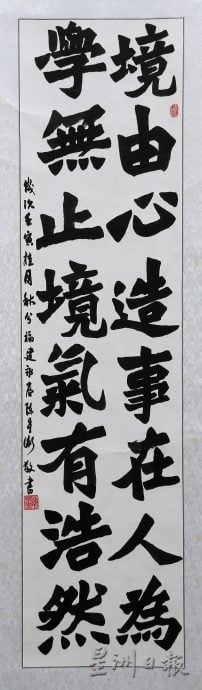 境由心造事在人為
學無止境氣有浩然
歲次壬寅桂月秋分福建永春敬書
星洲日报